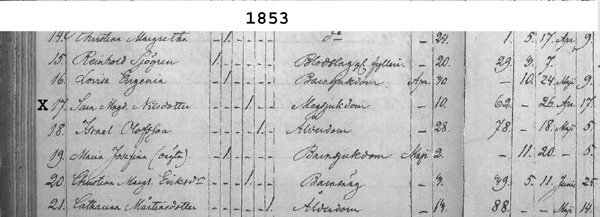 1853
14. Christina Margretha - 1. do - 24. 1. 5. 17. Apr. 9.
15. Reinhold Sjögren 1. Blodslag af fylleri. - 20. 29. 3. 7.
16. Lovisa Eugenia 1. Barnsjukdom Apr. 30. - 10. 24. Maji 9.
X 17. Sara Magd. Nilsdotter 1. Magsjukdom - 10. 62. - 26. Apr. 17.
18. Israel Oloffson 1. Ålderdom - 28. 78. - 18. Maji 5.
19. Maria Josefina (oägta) 1. Barnsjukdom Maji 2. - 11. 20. - 5.
20. Christina Margr. Eriksdr 1. Barnsäng - 9. 39. 5. 11. Junii 25.
21. Catharina Mårtensdotter 1. Ålderdom - 19. 88. - - Maji 14.